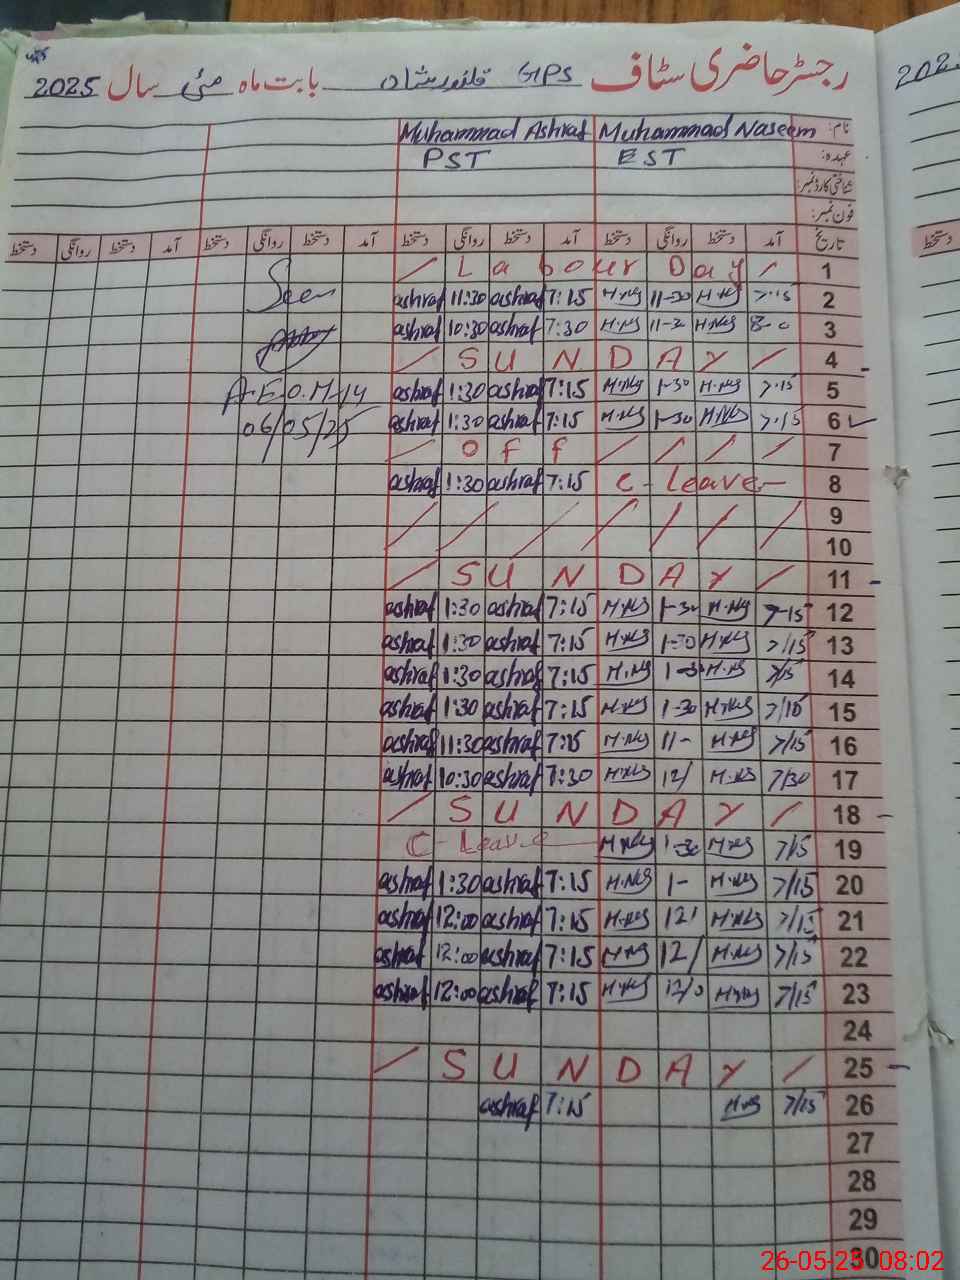 رجسٹر حاضری سٹاف GPS بابت ماہ مئی سال 2025
نام: Muhammad Naseem Muhammad Ashraf
عہدہ: EST PST
شناختی کارڈ نمبر:
فون نمبر:
تاریخ آمد دستخط روانگی دستخط آمد دستخط روانگی دستخط آمد دستخط روانگی دستخط آمد دستخط روانگی دستخط
/ Labour Day / 1
Seen
ashraf 11:30 ashraf 7:15 11-30 7-15 2
ashraf 10:30 ashraf 7:30 11-30 8-0 3
/ SUNDAY / 4
A.E.O.M-14 ashraf 1:30 ashraf 7:15 1-30 7-15 5
06/05/25 ashraf 1:30 ashraf 7:15 1-30 7-15 6
/ off / / / / 7
ashraf 1:30 ashraf 7:15 C-Leave- 8
9
10
/ SUNDAY / 11
ashraf 1:30 ashraf 7:15 1-30 7-15 12
ashraf 1:30 ashraf 7:15 1-30 7/15 13
ashraf 1:30 ashraf 7:15 1-30 7/15 14
ashraf 1:30 ashraf 7:15 1-30 7/15 15
ashraf 11:30 ashraf 7:15 11- 7/15 16
ashraf 10:30 ashraf 7:30 12/ 7/30 17
/ SUNDAY / 18
C-Leave 1-30 7/15 19
ashraf 1:30 ashraf 7:15 1- 7/15 20
ashraf 12:00 ashraf 7:15 12/ 7/15 21
ashraf 12:00 ashraf 7:15 12/ 7/15 22
ashraf 12:00 ashraf 7:15 12/0 7/15 23
24
/ SUNDAY / 25
ashraf 7:15 7/15 26
27
28
29
30
26-05-25 08:02